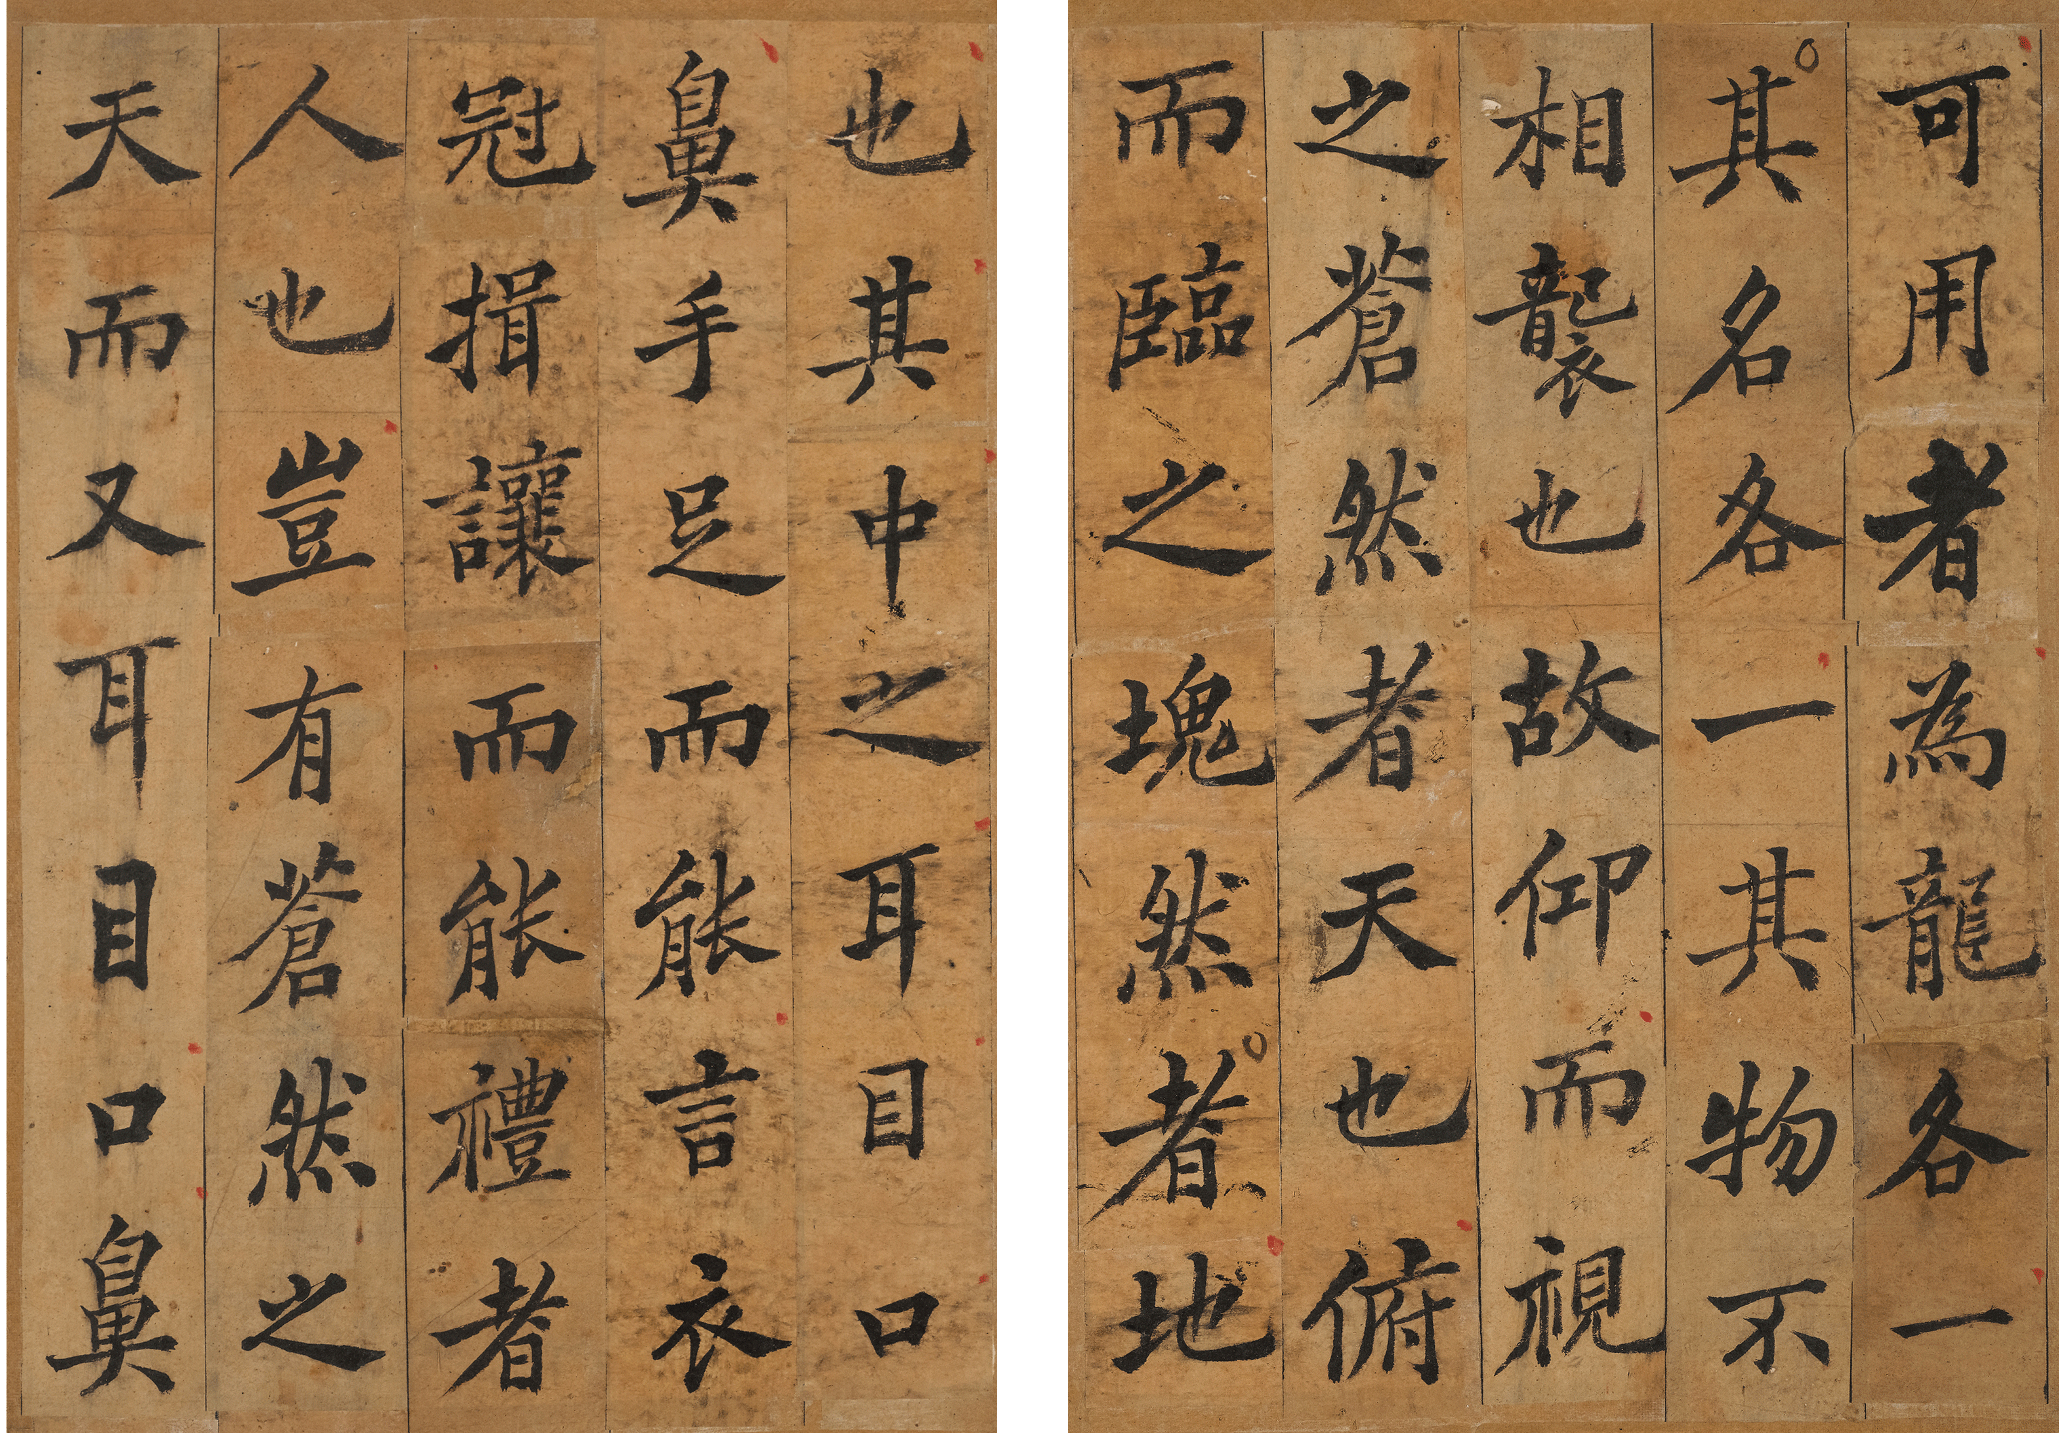 可用者為龍各一
其名各一其物不
相襲也故仰而視
之蒼然者天也俯
而臨之塊然者地
也其中之耳目口
鼻手足而能言衣
冠揖讓而能禮者
人也豈有蒼然之
天而又耳目口鼻